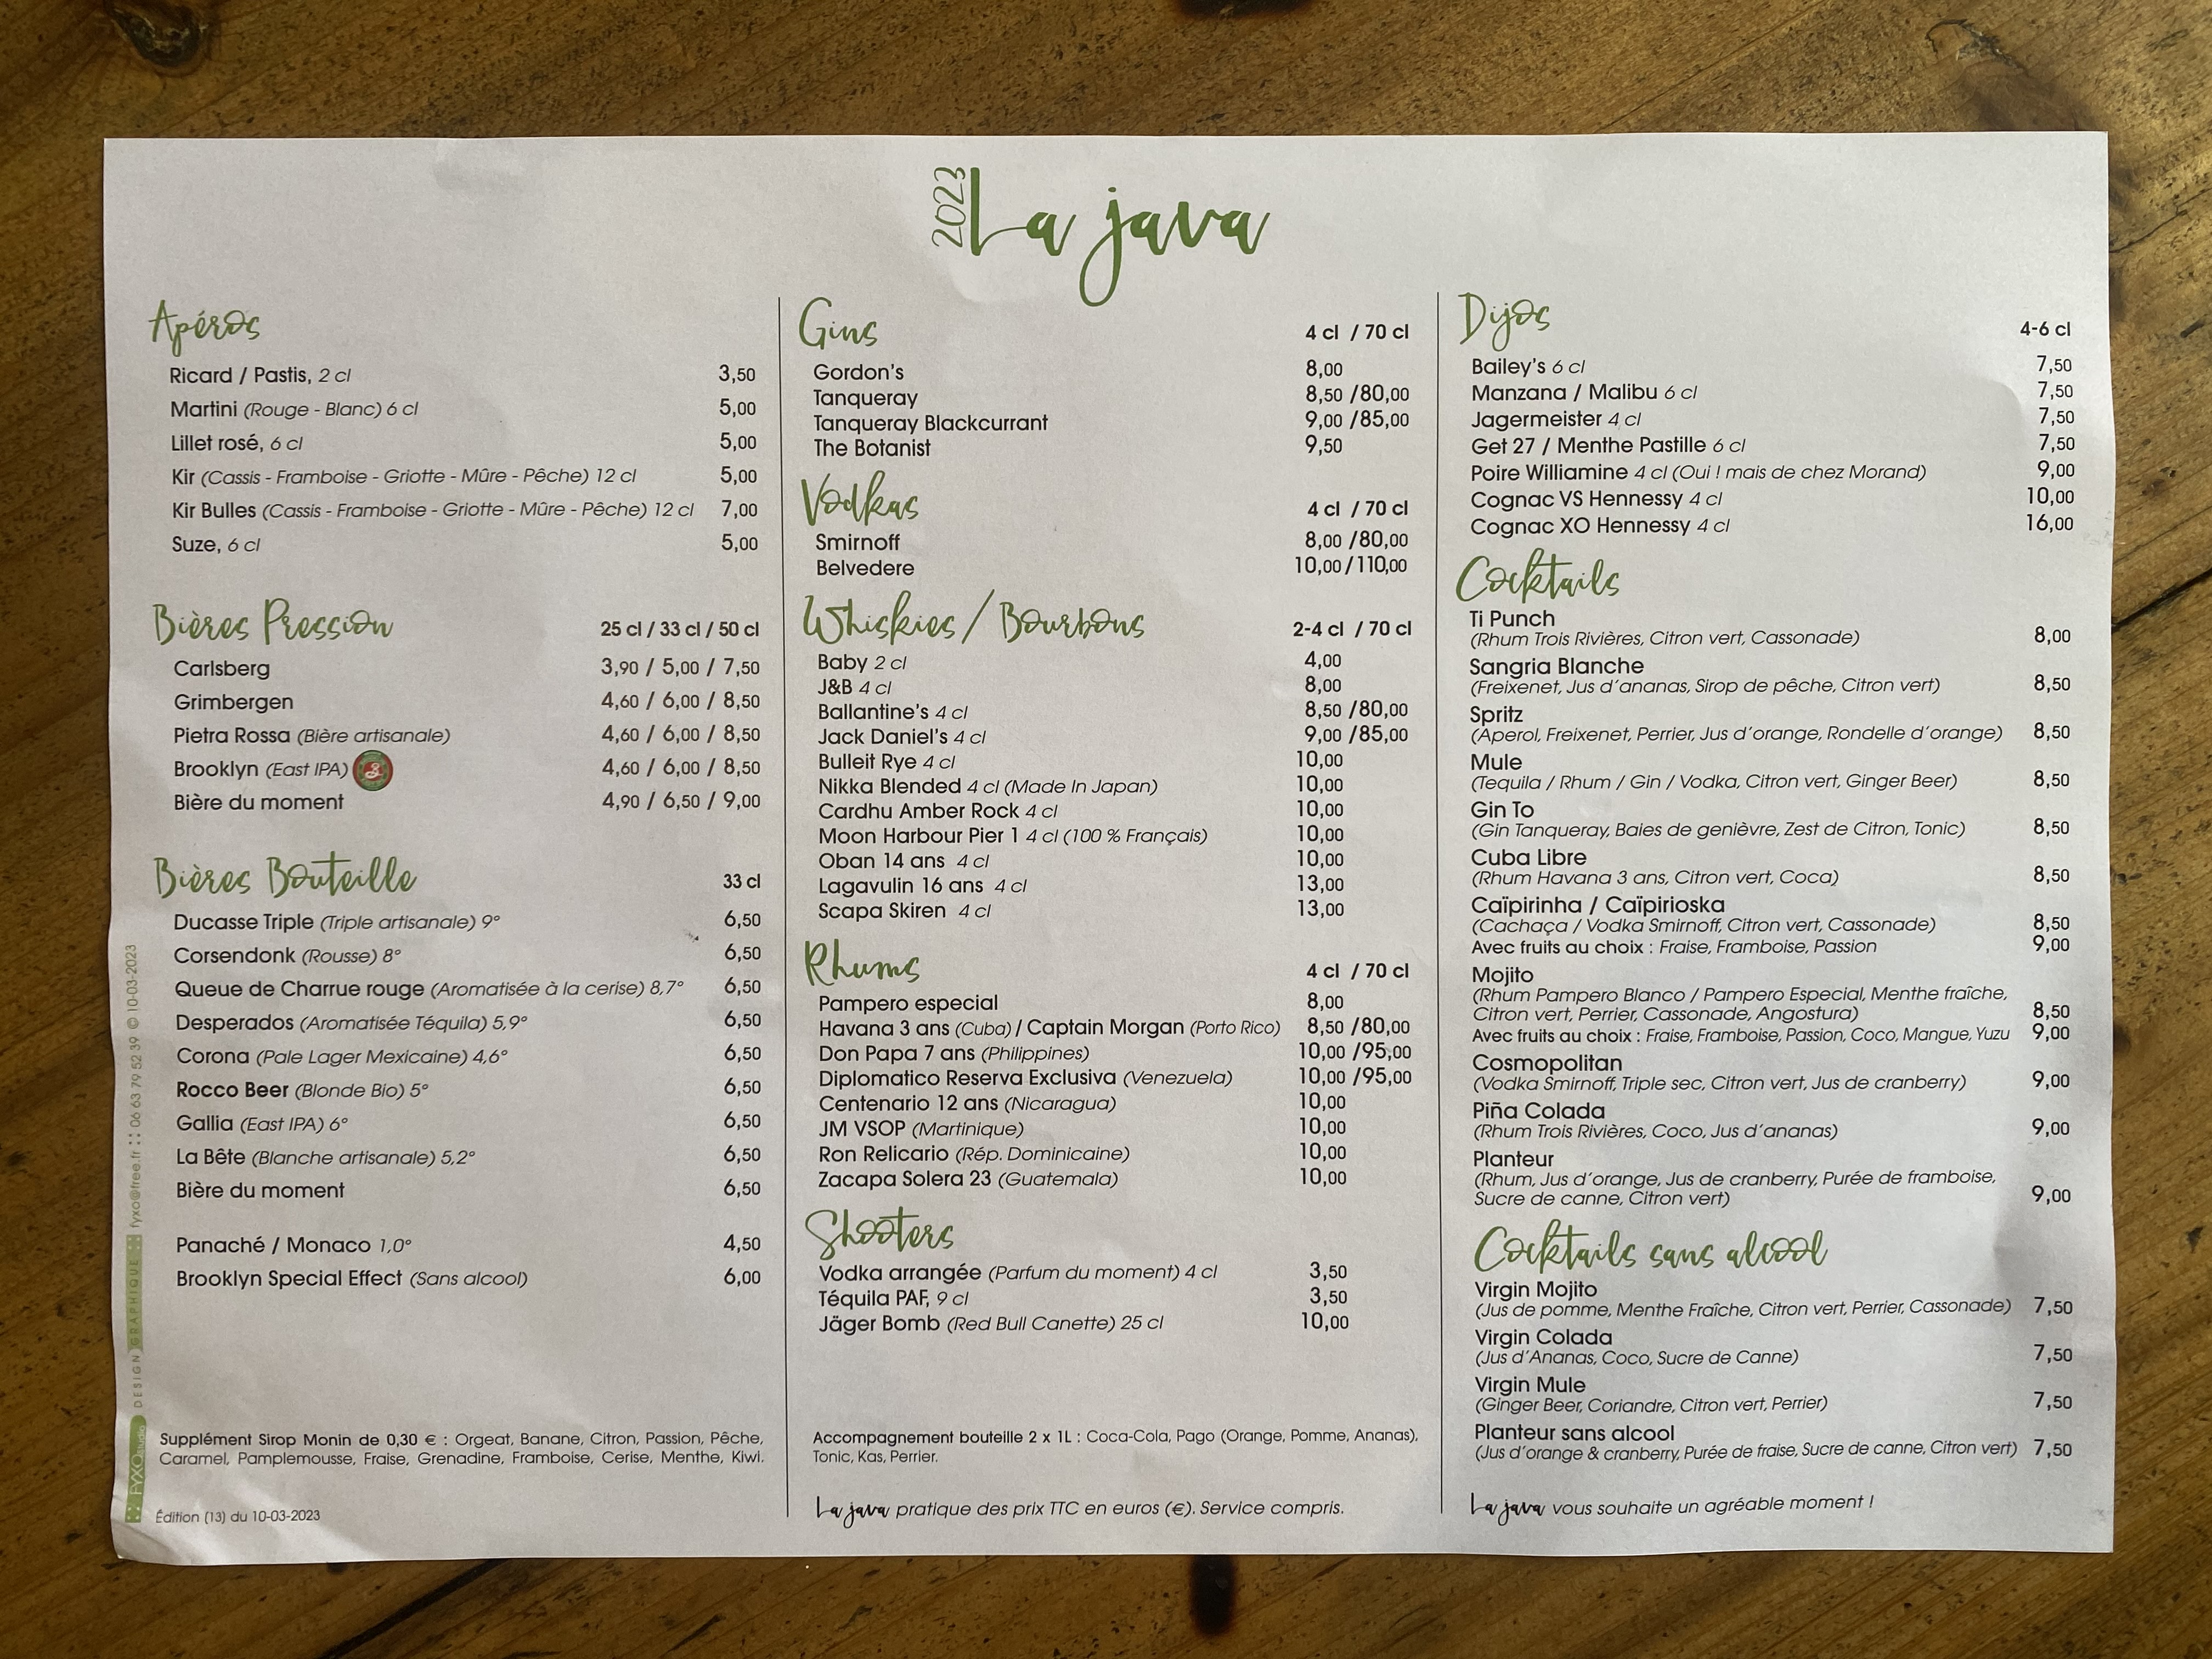 2023
La java
Apéros
Ricard / Pastis, 2 cl 3,50
Martini (Rouge - Blanc) 6 cl 5,00
Lillet rosé, 6 cl 5,00
Kir (Cassis - Framboise - Griotte - Mûre - Pêche) 12 cl 5,00
Kir Bulles (Cassis - Framboise - Griotte - Mûre - Pêche) 12 cl 7,00
Suze, 6 cl 5,00
Bières Pression 25 cl / 33 cl / 50 cl
Carlsberg 3,90 / 5,00 / 7,50
Grimbergen 4,60 / 6,00 / 8,50
Pietra Rossa (Bière artisanale) 4,60 / 6,00 / 8,50
Brooklyn (East IPA) 4,60 / 6,00 / 8,50
Bière du moment 4,90 / 6,50 / 9,00
Bières Bouteille 33 cl
Ducasse Triple (Triple artisanale) 9° 6,50
Corsendonk (Rousse) 8° 6,50
Queue de Charrue rouge (Aromatisée à la cerise) 8,7° 6,50
Desperados (Aromatisée Téquila) 5,9° 6,50
Corona (Pale Lager Mexicaine) 4,6° 6,50
Rocco Beer (Blonde Bio) 5° 6,50
Gallia (East IPA) 6° 6,50
La Bête (Blanche artisanale) 5,2° 6,50
Bière du moment 6,50
Panaché / Monaco 1,0° 4,50
Brooklyn Special Effect (Sans alcool) 6,00
Supplément Sirop Monin de 0,30 € : Orgeat, Banane, Citron, Passion, Pêche,
Caramel, Pamplemousse, Fraise, Grenadine, Framboise, Cerise, Menthe, Kiwi.
Édition (13) du 10-03-2023
FYXOstudio DESIGN GRAPHIQUE fyxo@free.fr :: 06 63 79 52 39 © 10-03-2023
Gins 4 cl / 70 cl
Gordon's 8,00
Tanqueray 8,50 /80,00
Tanqueray Blackcurrant 9,00 /85,00
The Botanist 9,50
Vodkas 4 cl / 70 cl
Smirnoff 8,00 /80,00
Belvedere 10,00/110,00
Whiskies / Bourbons 2-4 cl / 70 cl
Baby 2 cl 4,00
J&B 4 cl 8,00
Ballantine's 4 cl 8,50 /80,00
Jack Daniel's 4 cl 9,00 /85,00
Bulleit Rye 4 cl 10,00
Nikka Blended 4 cl (Made In Japan) 10,00
Cardhu Amber Rock 4 cl 10,00
Moon Harbour Pier 1 4 cl (100 % Français) 10,00
Oban 14 ans 4 cl 10,00
Lagavulin 16 ans 4 cl 13,00
Scapa Skiren 4 cl 13,00
Rhums 4 cl / 70 cl
Pampero especial 8,00
Havana 3 ans (Cuba) / Captain Morgan (Porto Rico) 8,50 /80,00
Don Papa 7 ans (Philippines) 10,00 /95,00
Diplomatico Reserva Exclusiva (Venezuela) 10,00 /95,00
Centenario 12 ans (Nicaragua) 10,00
JM VSOP (Martinique) 10,00
Ron Relicario (Rép. Dominicaine) 10,00
Zacapa Solera 23 (Guatemala) 10,00
Shooters
Vodka arrangée (Parfum du moment) 4 cl 3,50
Téquila PAF, 9 cl 3,50
Jäger Bomb (Red Bull Canette) 25 cl 10,00
Accompagnement bouteille 2 x 1L : Coca-Cola, Pago (Orange, Pomme, Ananas),
Tonic, Kas, Perrier.
La java pratique des prix TTC en euros (€). Service compris.
Dijos 4-6 cl
Bailey's 6 cl 7,50
Manzana / Malibu 6 cl 7,50
Jagermeister 4 cl 7,50
Get 27 / Menthe Pastille 6 cl 7,50
Poire Williamine 4 cl (Oui ! mais de chez Morand) 9,00
Cognac VS Hennessy 4 cl 10,00
Cognac XO Hennessy 4 cl 16,00
Cocktails
Ti Punch
(Rhum Trois Rivières, Citron vert, Cassonade) 8,00
Sangria Blanche
(Freixenet, Jus d'ananas, Sirop de pêche, Citron vert) 8,50
Spritz
(Aperol, Freixenet, Perrier, Jus d'orange, Rondelle d'orange) 8,50
Mule
(Tequila / Rhum / Gin / Vodka, Citron vert, Ginger Beer) 8,50
Gin To
(Gin Tanqueray, Baies de genièvre, Zest de Citron, Tonic) 8,50
Cuba Libre
(Rhum Havana 3 ans, Citron vert, Coca) 8,50
Caïpirinha / Caïpirioska
(Cachaça / Vodka Smirnoff, Citron vert, Cassonade) 8,50
Avec fruits au choix : Fraise, Framboise, Passion 9,00
Mojito
(Rhum Pampero Blanco / Pampero Especial, Menthe fraîche,
Citron vert, Perrier, Cassonade, Angostura) 8,50
Avec fruits au choix : Fraise, Framboise, Passion, Coco, Mangue, Yuzu 9,00
Cosmopolitan
(Vodka Smirnoff, Triple sec, Citron vert, Jus de cranberry) 9,00
Piña Colada
(Rhum Trois Rivières, Coco, Jus d'ananas) 9,00
Planteur
(Rhum, Jus d'orange, Jus de cranberry, Purée de framboise,
Sucre de canne, Citron vert) 9,00
Cocktails sans alcool
Virgin Mojito
(Jus de pomme, Menthe Fraîche, Citron vert, Perrier, Cassonade) 7,50
Virgin Colada
(Jus d'Ananas, Coco, Sucre de Canne) 7,50
Virgin Mule
(Ginger Beer, Coriandre, Citron vert, Perrier) 7,50
Planteur sans alcool
(Jus d'orange & cranberry, Purée de fraise, Sucre de canne, Citron vert) 7,50
La java vous souhaite un agréable moment !